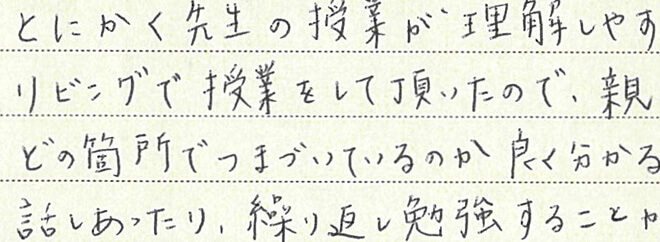 とにかく先生の授業が理解しやす
リビングで授業をして頂いたので、親
どの箇所でつまづいているのか良く分かる
話しあったり、繰り返し勉強すること